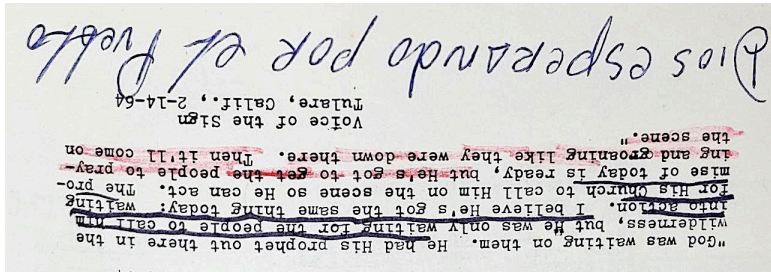 "God was waiting on them. He had His prophet out there in the
wilderness, but He was only waiting for the people to call him
into action. I believe He's got the same thing today: waiting
for His Church to call Him on the scene so He can act. The pro-
mise of today is ready, but He's got to get the people to pray-
ing and groaning like they were down there. Then it'll come on
the scene."
Voice of the Sign
Tulare, Calif., 2-14-64
Dios esperando por el Pueblo